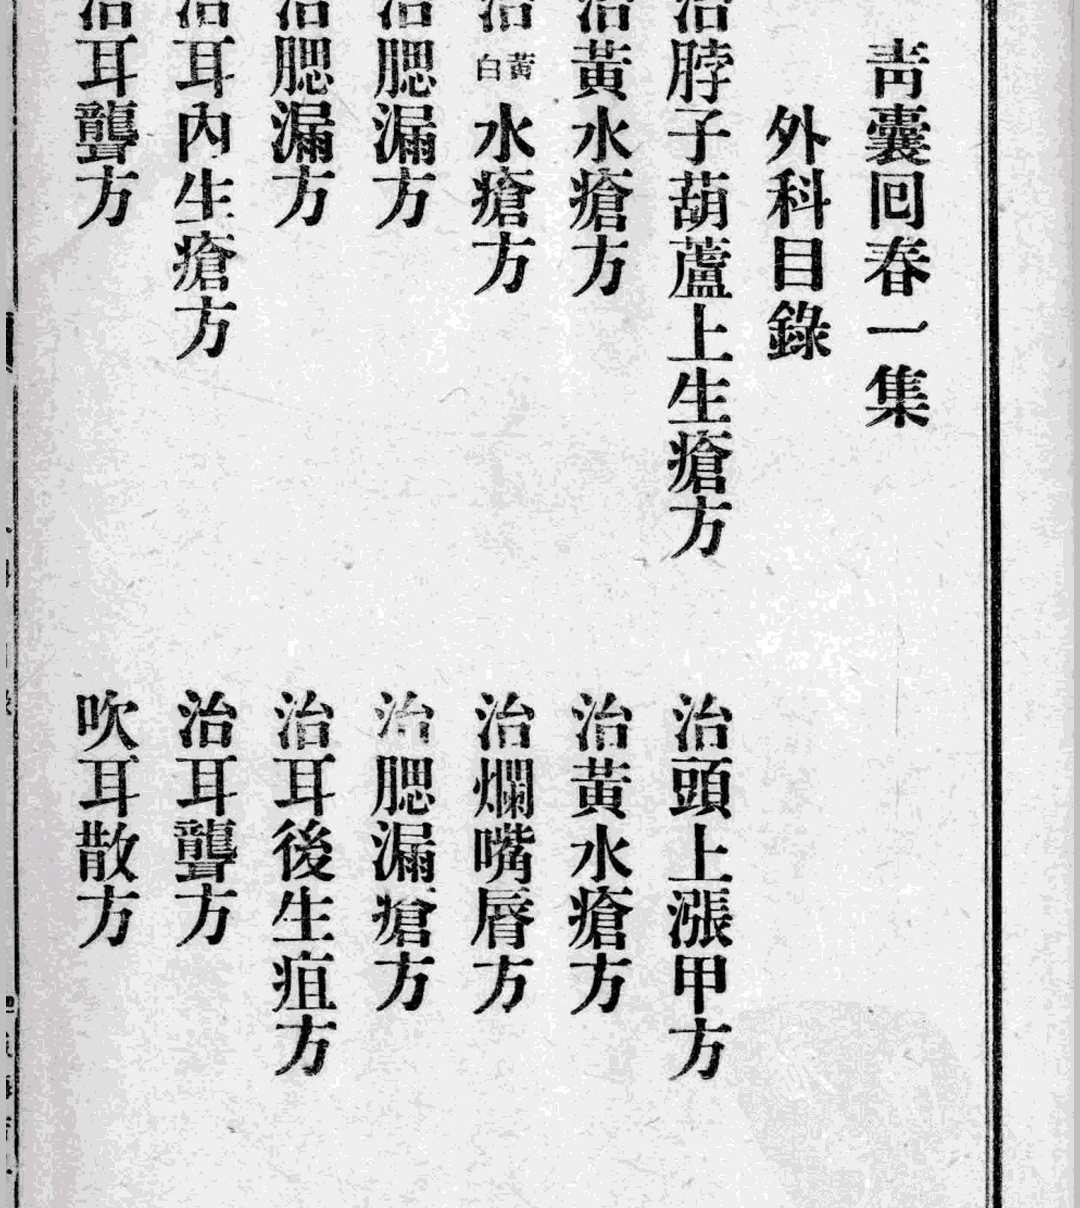 青囊回春一集
外科目錄
治脖子葫蘆上生瘡方
治頭上漲甲方
治黃水瘡方
治黃水瘡方
治黃白水瘡方
治爛嘴唇方
治腮漏方
治腮漏瘡方
治腮漏方
治耳後生疽方
治耳內生瘡方
治耳聾方
治耳聾方
吹耳散方